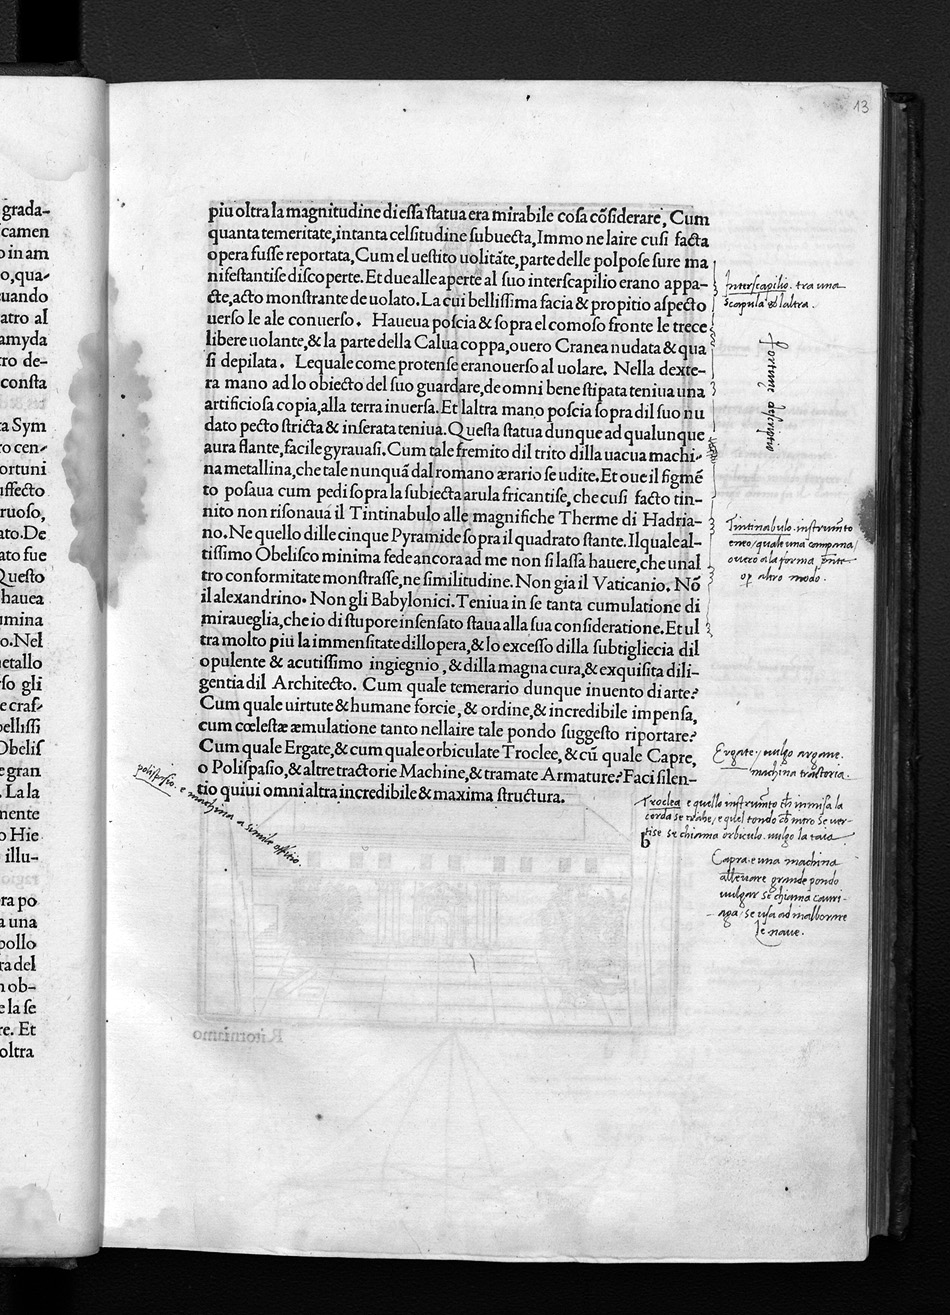 13
piu oltra la magnitudine di essa statua era mirabile cosa cõsiderare, Cum
quanta temeritate, in tanta celsitudine subuecta, Immo ne laire cusi facta
opera fusse reportata, Cum el uestito uolitãte, parte delle polpose sure ma
nifestantise discoperte. Et due alle aperte al suo interscapilio erano appa-
cte, acto monstrante de uolato. La cui bellissima facia & propitio aspecto
uerso le ale conuerso. Haueua poscia & sopra el comoso fronte le trece
libere uolante, & la parte della Calua coppa, ouero Cranea nudata & qua
si depilata. Lequale come protense erano uerso al uolare. Nella dexte-
ra mano ad lo obiecto del suo guardare, de omni bene stipata teniua una
artificiosa copia, alla terra inuersa. Et laltra mano poscia sopra dil suo nu
dato pecto stricta & inserata teniua. Questa statua dunque ad qualunque
aura flante, facile gyrauasi. Cum tale fremito dil trito dilla uacua machi-
na metallina, che tale nunquã dal romano ærario se udite. Et oue il figmẽ
to posaua cum pedi sopra la subiecta arula fricantise, che cusi facto tin-
nito non risonaua il Tintinabulo alle magnifiche Therme di Hadria-
no. Ne quello dille cinque Pyramide sopra il quadrato stante. Il quale al-
tissimo Obelisco minima fede ancora ad me non si lassa hauere, che unal
tro conformitate monstrasse, ne similitudine. Non gia il Vaticanio. Nõ
il alexandrino. Non gli Babylonici. Teniua in se tanta cumulatione di
miraueglia, che io di stupore insensato staua alla sua consideratione. Et ul
tra molto piu la immensitate dillopera, & lo excesso dilla subtigliecia dil
opulente & acutissimo ingiegnio, & dilla magna cura, & exquisita dili-
gentia dil Architecto. Cum quale temerario dunque inuento di arte?
Cum quale uirtute & humane forcie, & ordine, & incredibile impensa,
cum cœlestæ æmulatione tanto nellaire tale pondo suggesto riportare?
Cum quale Ergate, & cum quale orbiculate Troclee, & cũ quale Capre,
o Polispasio, & altre tractorie Machine, & tramate Armature? Faci silen-
tio quiui omni altra incredibile & maxima structura.
b
Interscapilio. tra una
scapula & laltra.
fortunę descriptio
Tintinabulo. instrumẽto
eneo, quale una campana,
ouero ala forma
altro modo.
Ergate. uulgo argane.
machina tractoria.
Troclea e quello instrumẽto immissa la
corda se trahe, e quel tondo ñtro se uer-
tise se chiama orbiculo. uulgo la taia
Capra. e una machina
alleuare grande pondo
uulgar se chiama caurì-
aga, se usa ad inalborare
le naue.
polispasio. e machina a simile offitio.
Ritorniamo
grada-
camen
o in am
o, qua-
uando
atro al
amyda
tro de-
consta
ta Sym
ro cen-
ortuni
uffecto
ruoso,
ato. De
ato fue
Questo
hauea
umina
o. Nel
etallo
so gli
e cras-
bellissi
Obelis
egran
. La la
mente
o Hie
illu-
ra po
a una
pollo
ra del
n ob-
e la se
re. Et
oltra